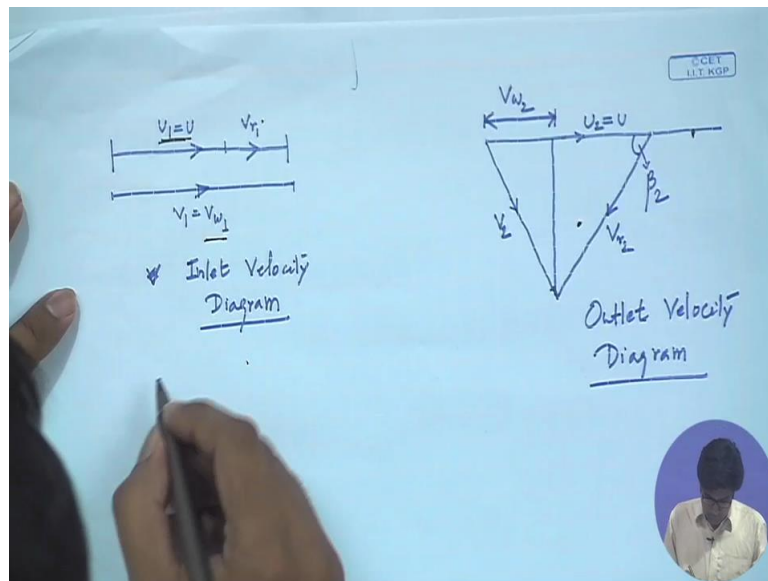 ©CET
I.I.T. KGP
U₁=U Vr₁
V₁ = Vw₁
Inlet Velocity
Diagram
Vw₂
U₂=U
β₂
V₂
Vr₂
Outlet Velocity
Diagram